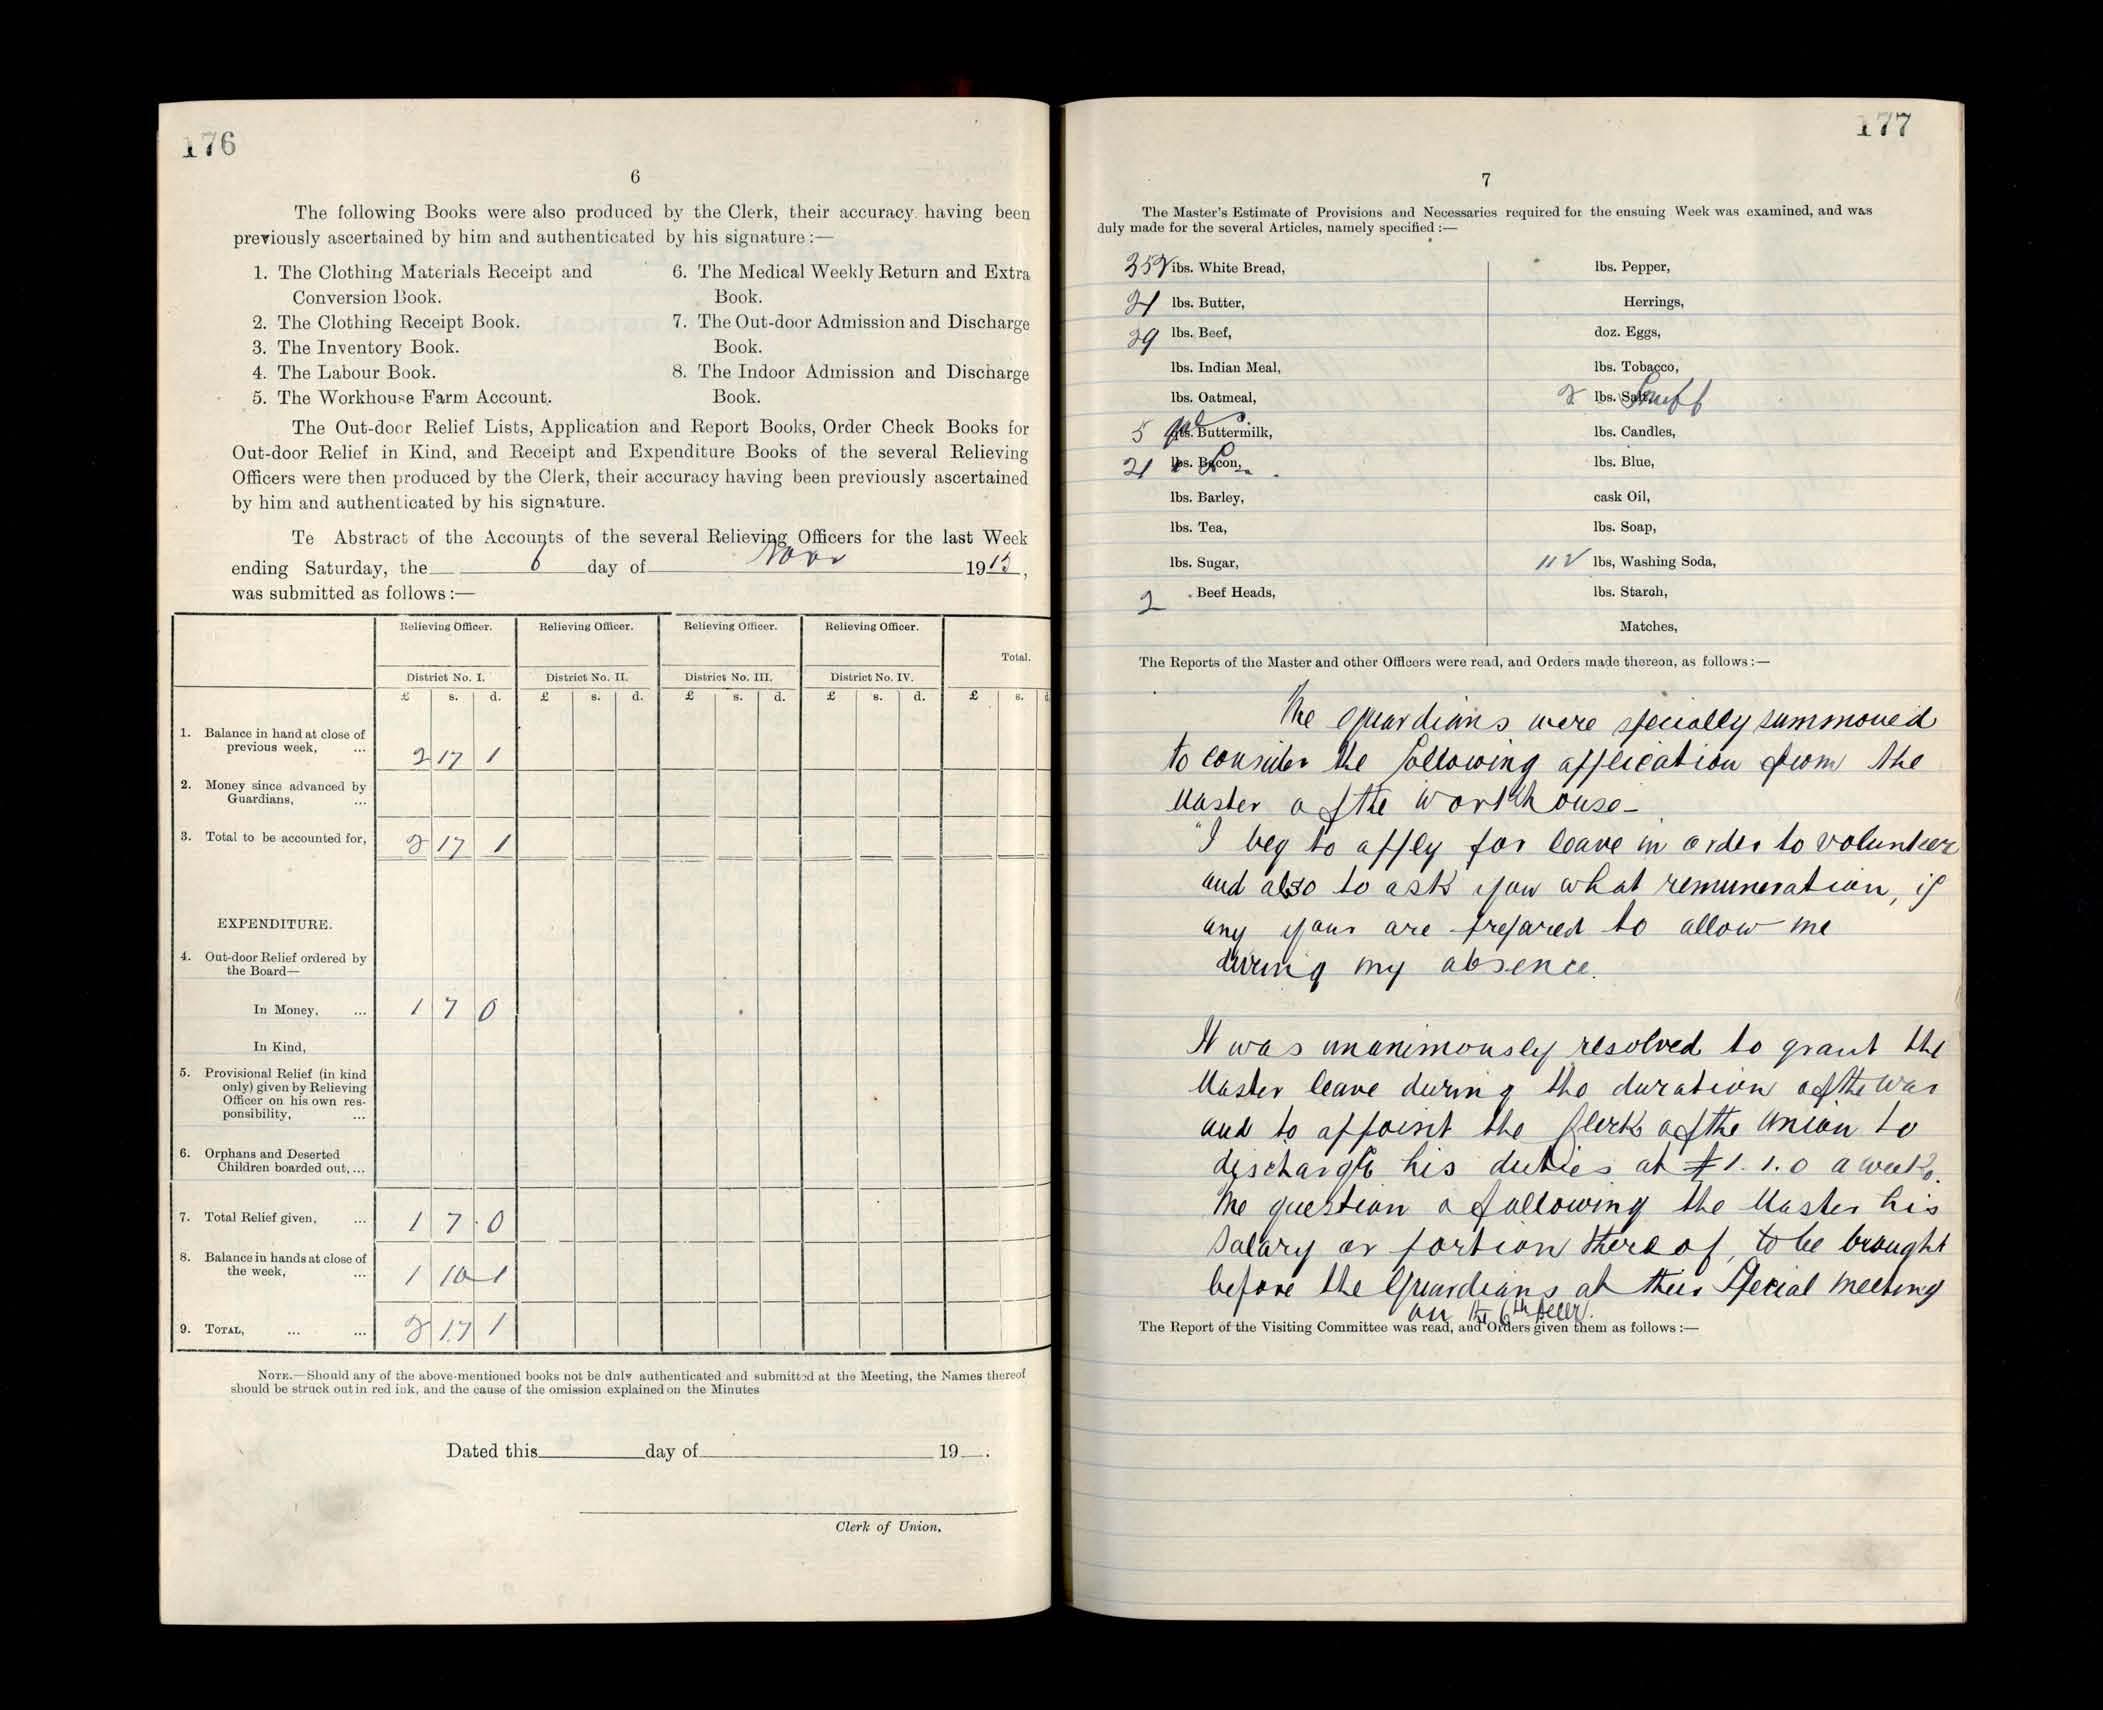 176
6
The following Books were also produced by the Clerk, their accuracy having been
previously ascertained by him and authenticated by his signature:—
1. The Clothing Materials Receipt and
Conversion Book.
2. The Clothing Receipt Book.
3. The Inventory Book.
4. The Labour Book.
5. The Workhouse Farm Account.
6. The Medical Weekly Return and Extra
Book.
7. The Out-door Admission and Discharge
Book.
8. The Indoor Admission and Discharge
Book.
The Out-door Relief Lists, Application and Report Books, Order Check Books for
Out-door Relief in Kind, and Receipt and Expenditure Books of the several Relieving
Officers were then produced by the Clerk, their accuracy having been previously ascertained
by him and authenticated by his signature.
Te Abstract of the Accounts of the several Relieving Officers for the last Week
ending Saturday, the 6 day of Novr 1915,
was submitted as follows:—
Relieving Officer. Relieving Officer. Relieving Officer. Relieving Officer.
Total.
District No. I. District No. II. District No. III. District No. IV.
£ s. d. £ s. d. £ s. d. £ s. d. £ s. d
1. Balance in hand at close of
previous week, ... 2 17 1
2. Money since advanced by
Guardians, ...
3. Total to be accounted for, 2 17 1
EXPENDITURE.
4. Out-door Relief ordered by
the Board—
In Money, ... 1 7 0
In Kind,
5. Provisional Relief (in kind
only) given by Relieving
Officer on his own res-
ponsibility, ...
6. Orphans and Deserted
Children boarded out, ...
7. Total Relief given, ... 1 7 0
8. Balance in hands at close of
the week, ... 1 10 1
9. TOTAL, ... ... 2 17 1
NOTE.—Should any of the above-mentioned books not be duly authenticated and submitted at the Meeting, the Names thereof
should be struck out in red ink, and the cause of the omission explained on the Minutes
Dated this day of 19 .
Clerk of Union,
177
7
The Master's Estimate of Provisions and Necessaries required for the ensuing Week was examined, and was
duly made for the several Articles, namely specified:—
352 lbs. White Bread,
21 lbs. Butter,
39 lbs. Beef,
lbs. Indian Meal,
lbs. Oatmeal,
5 Buttermilk,
21 lbs. Bacon,
lbs. Barley,
lbs. Tea,
lbs. Sugar,
2 Beef Heads,
lbs. Pepper,
Herrings,
doz. Eggs,
lbs. Tobacco,
2 lbs. Salt, Snuff
lbs. Candles,
lbs. Blue,
cask Oil,
lbs. Soap,
112 lbs, Washing Soda,
lbs. Starch,
Matches,
The Reports of the Master and other Officers were read, and Orders made thereon, as follows:—
The Guardians were specially summoned
to consider the following application from the
Master of the Workhouse—
"I beg to apply for leave in order to volunteer
and also to ask you what remuneration, if
any your are prepared to allow me
during my absence.
It was unanimously resolved to grant the
Master leave during the duration of the war
and to appoint the Clerk of the Union to
discharge his duties at £1.1.0 a week.
The question of allowing the Master his
Salary or portion thereof, to be brought
before the Guardians at their Special Meeting
on the 6th Decr.
The Report of the Visiting Committee was read, and Orders given them as follows:—